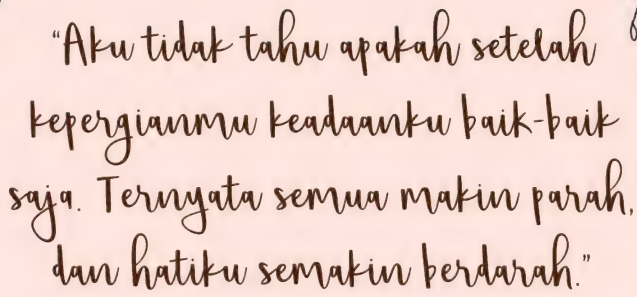 "Aku tidak tahu apakah setelah
kepergianmu keadaanku baik-baik
saja. Ternyata semua makin parah,
dan hatiku semakin berdarah."